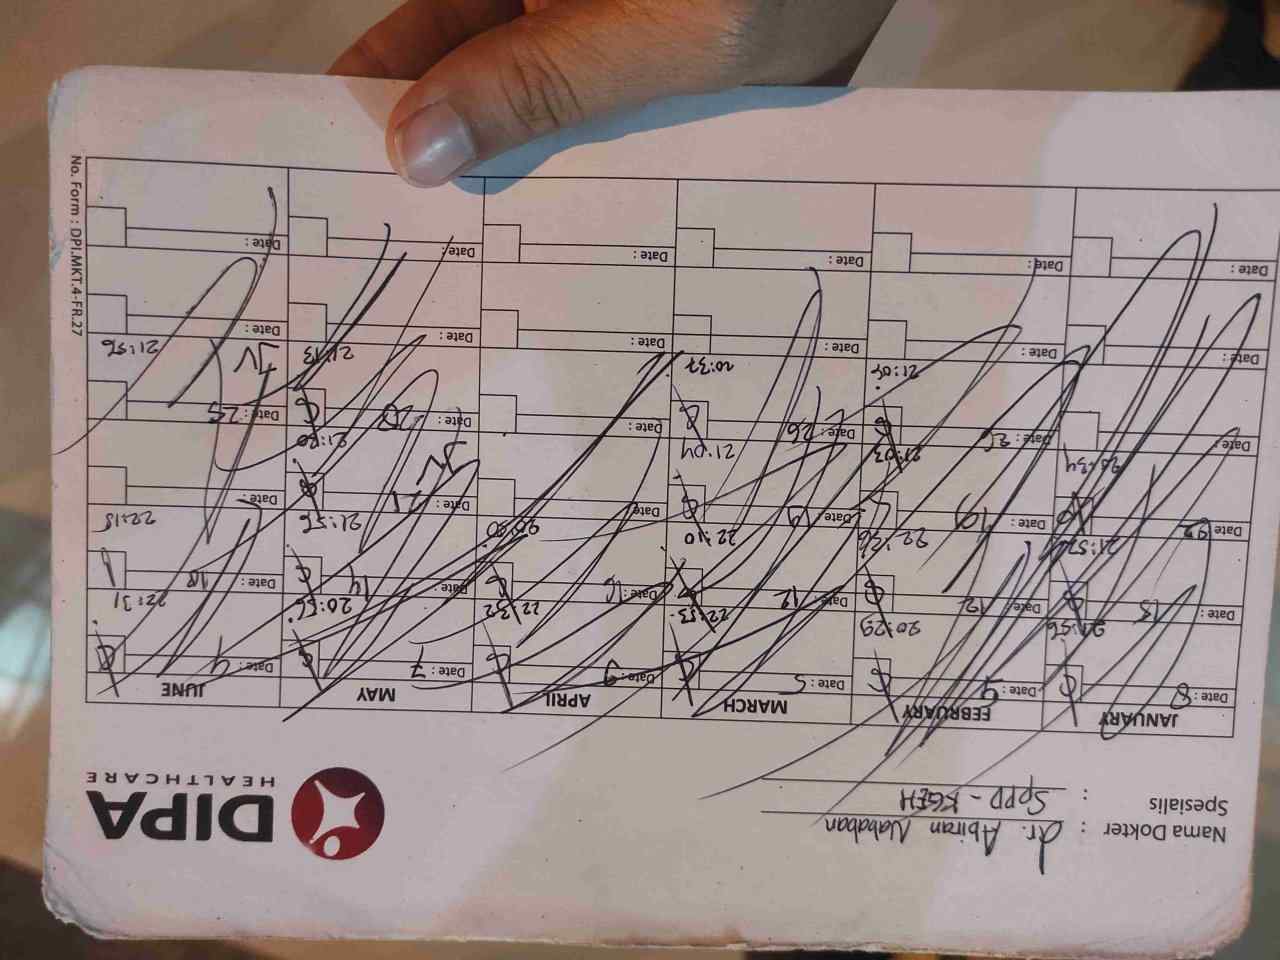 Nama Dokter : dr. Abiran Nababan
Spesialis : SPPD - KGEH
DIPA
HEALTHCARE
JANUARY FEBRUARY MARCH APRIL MAY JUNE
Date: 8 Date: 5 Date: 5 Date: Date: 7 Date: 4
21:56 20:29 22:53 22:32 20:56 22:31
Date: 15 Date: 12 Date: 12 Date: 16 Date: 14 Date: 18
21:52 22:26 22:10 20:50 21:56 22:18
Date: 22 Date: 19 Date: 19 Date: Date: 21 Date:
20:34 21:03 21:04 21:20
Date: Date: 26 Date: 26 Date: Date: 28 Date: 25
21:04 20:37 21:13 21:56
Date: Date: Date: Date: Date: Date:
Date: Date: Date: Date: Date: Date:
No. Form : DPI.MKT.4-FR.27